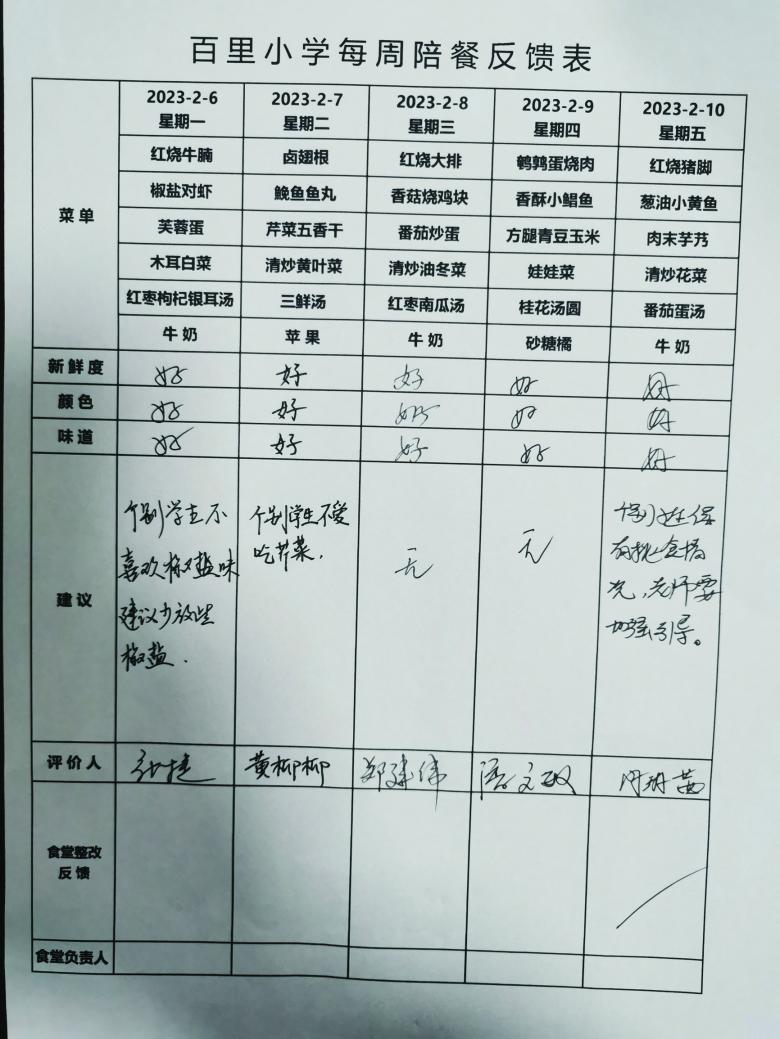 百里小学每周陪餐反馈表
菜单 2023-2-6 2023-2-7 2023-2-8 2023-2-9 2023-2-10
星期一 星期二 星期三 星期四 星期五
红烧牛腩 卤翅根 红烧大排 鹌鹑蛋烧肉 红烧猪脚
椒盐对虾 鮸鱼鱼丸 香菇烧鸡块 香酥小鲳鱼 葱油小黄鱼
芙蓉蛋 芹菜五香干 番茄炒蛋 方腿青豆玉米 肉末芋艿
木耳白菜 清炒黄叶菜 清炒油冬菜 娃娃菜 清炒花菜
红枣枸杞银耳汤 三鲜汤 红枣南瓜汤 桂花汤圆 番茄蛋汤
牛奶 苹果 牛奶 砂糖橘 牛奶
新鲜度 好 好 好 好 好
颜色 好 好 好 好 好
味道 好 好 好 好 好
建议
个别学生不
喜欢椒盐味
建议少放些
椒盐.
个别学生不爱
吃芹菜.
无
无
有挑食情
况,老师要
加强引导。
评价人 黄柳柳 郑建伟
食堂整改
反馈
食堂负责人